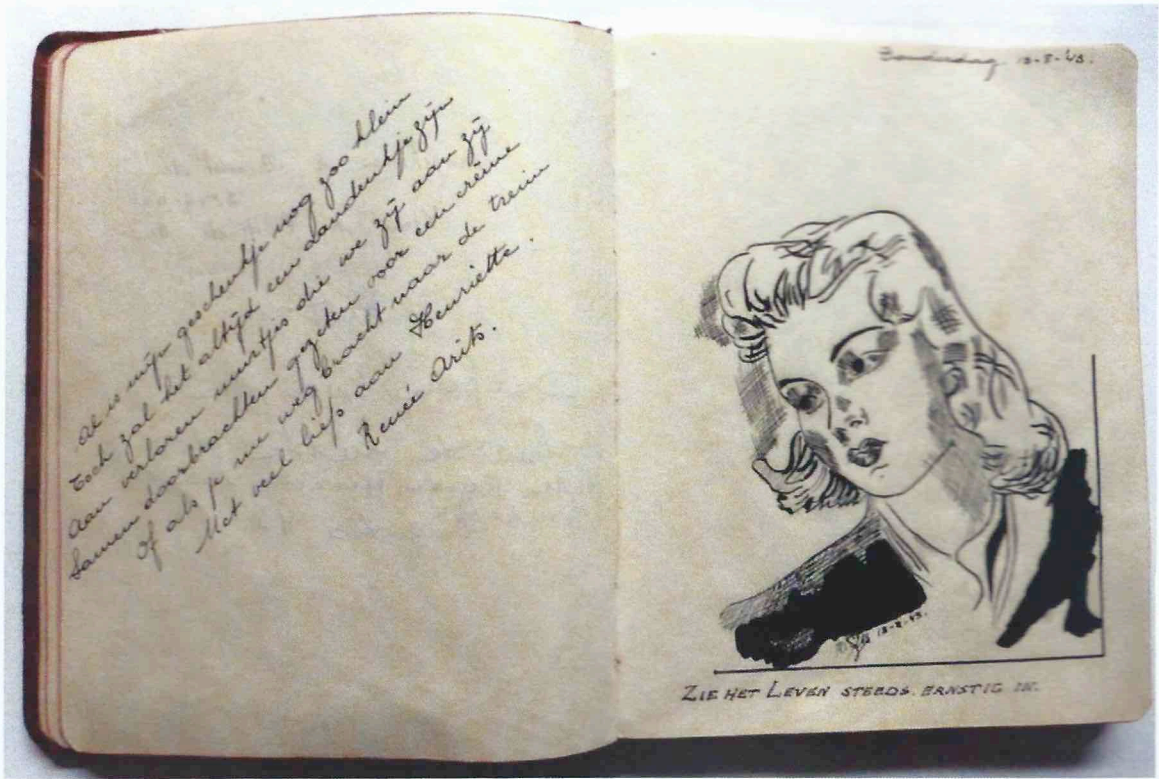 Al is mijn geschenkje nog zoo klein
Toch zal het altijd een aandenkje zijn
Aan verloren uurtjes die we zij aan zij
Samen doorbrachten gezeten voor een crème
Of als je me weg bracht naar de trein
Met veel liefs aan Henriette.
Renée Arits.
Donderdag 13-5-43.
13-5-43.
ZIE HET LEVEN STEEDS ERNSTIG IN.